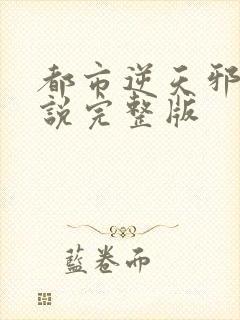 都市逆天邪
說完整版
藍卷而